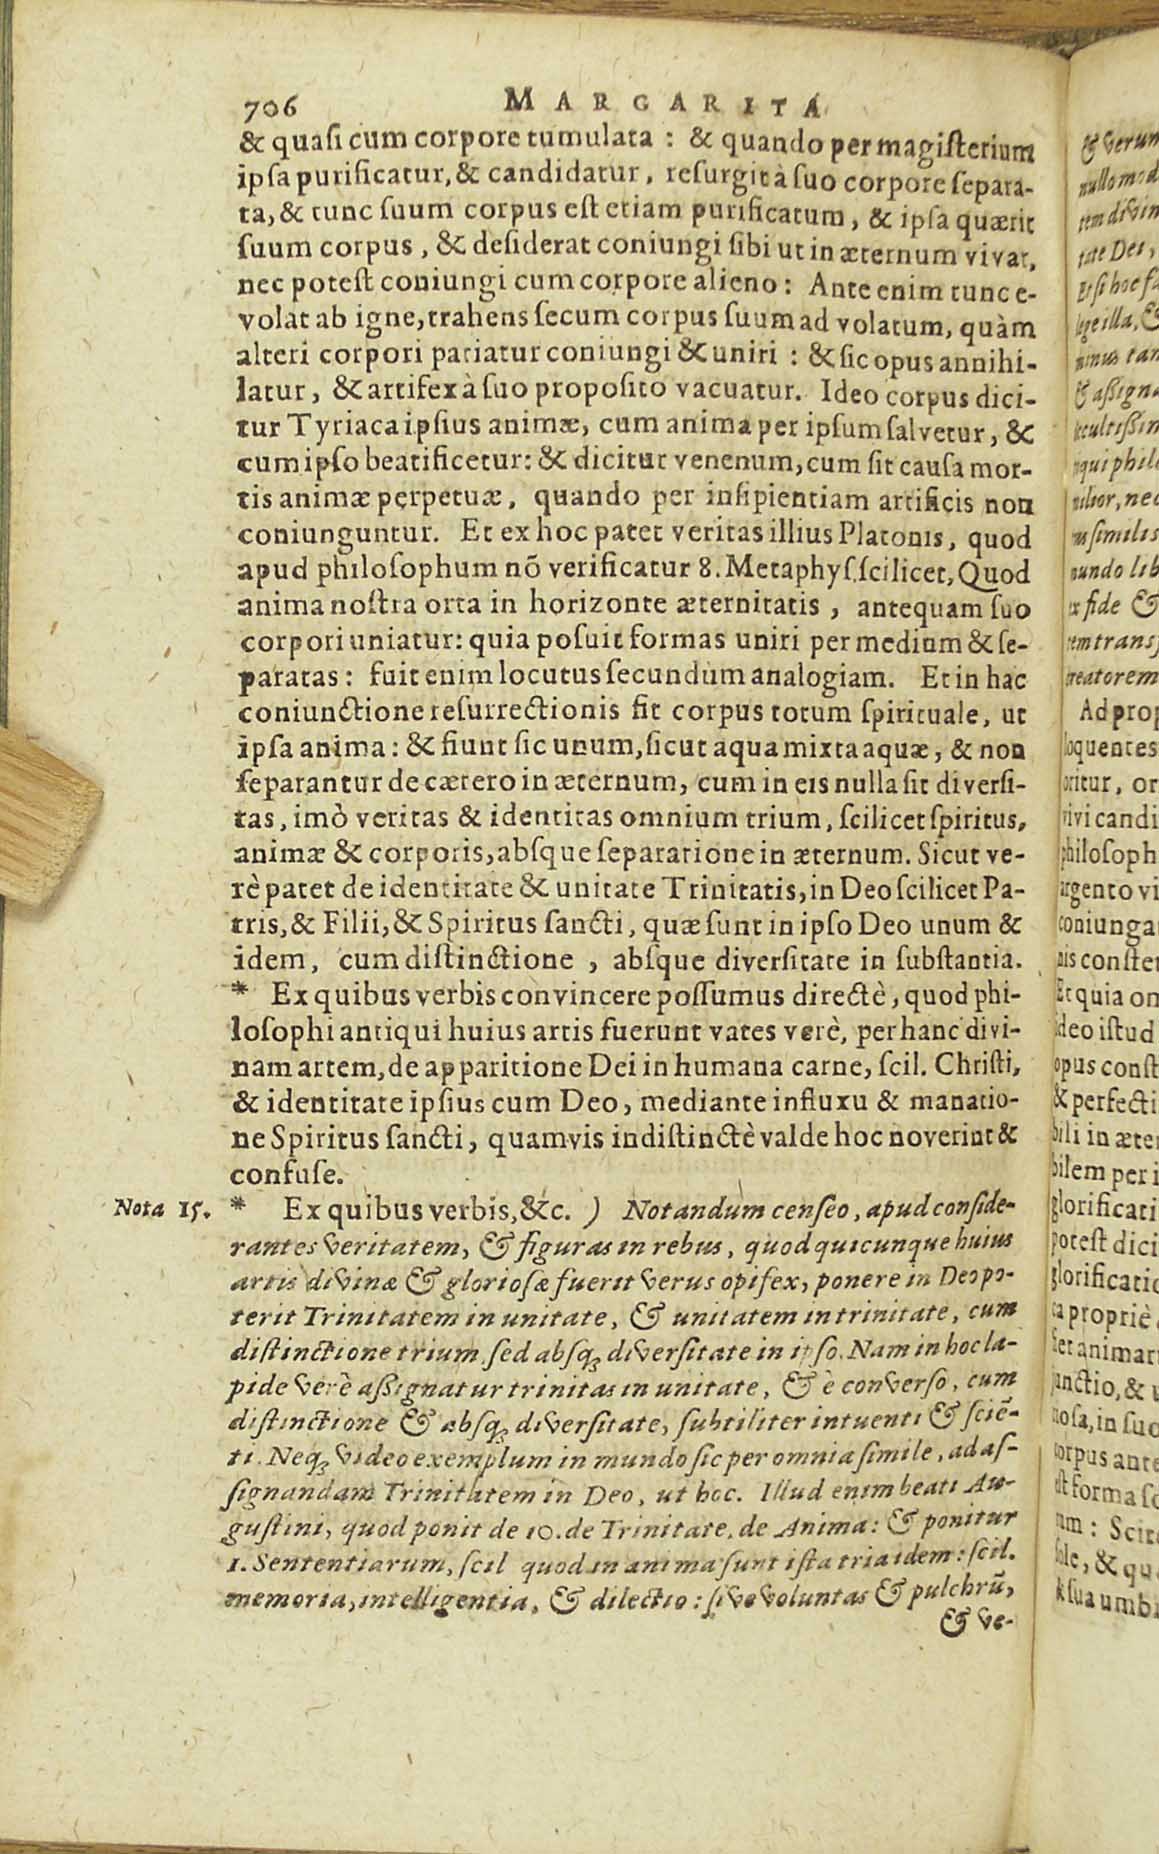 706 MARGARITA
& quasi cum corpore tumulata : & quando per magisterium
ipsa purificatur, & candidatur, resurgit à suo corpore separa-
ta, & tunc suum corpus est etiam purificatum, & ipsa quærit
suum corpus, & desiderat coniungi sibi ut in æternum vivat,
nec potest coniungi cum corpore alieno : Ante enim tunc e-
volat ab igne, trahens secum corpus suum ad volatum, quàm
alteri corpori patiatur coniungi & uniri : & sic opus annihi-
latur, & artifex à suo proposito vacuatur. Ideo corpus dici-
tur Tyriaca ipsius animæ, cum anima per ipsum salvetur, &
cum ipso beatificetur: & dicitur venenum, cum sit causa mor-
tis animæ perpetuæ, quando per insipientiam artificis non
coniunguntur. Et ex hoc patet veritas illius Platonis, quod
apud philosophum nō verificatur 8. Metaphys. scilicet, Quod
anima nostra orta in horizonte æternitatis, antequam suo
corpori uniatur: quia posuit formas uniri per medium & se-
paratas: fuit enim locutus secundum analogiam. Et in hac
coniunctione resurrectionis fit corpus totum spirituale, ut
ipsa anima: & fiunt sic unum, sicut aqua mixta aquæ, & non
separantur de cætero in æternum, cum in eis nulla sit diversi-
tas, imò veritas & identitas omnium trium, scilicet spiritus,
animæ & corporis, absque separatione in æternum. Sicut ve-
rè patet de identitate & unitate Trinitatis, in Deo scilicet Pa-
tris, & Filii, & Spiritus sancti, quæ sunt in ipso Deo unum &
idem, cum distinctione, absque diversitate in substantia.
* Ex quibus verbis convincere possumus directè, quod phi-
losophi antiqui huius artis fuerunt vates verè, per hanc divi-
nam artem, de apparitione Dei in humana carne, scil. Christi,
& identitate ipsius cum Deo, mediante influxu & manatio-
ne Spiritus sancti, quamvis indistinctè valde hoc noverint &
confuse.
Nota 15. * Ex quibus verbis, &c. ) Notandum censeo, apud conside-
rantes veritatem, & figuras in rebus, quod quicunque huius
artis divinæ & gloriosæ fuerit verus opifex, ponere in Deo po-
terit Trinitatem in unitate, & unitatem in trinitate, cum
distinctione trium sed absq; diversitate in ipso. Nam in hoc la-
pide verè assignatur trinitas in unitate, & è converso, cum
distinctione & absq; diversitate, subtiliter intuenti & sciē-
ti. Neq; video exemplum in mundo sic per omnia simile, ad as-
signandam Trinitatem in Deo, ut hoc. Illud enim beati Au-
gustini, quod ponit de 10. de Trinitate, de Anima: & ponitur
1. Sententiarum, scil quod in anima sunt ista tria idem: scil.
memoria, intelligentia, & dilectio: sive voluntas & pulchrū,
& ve-